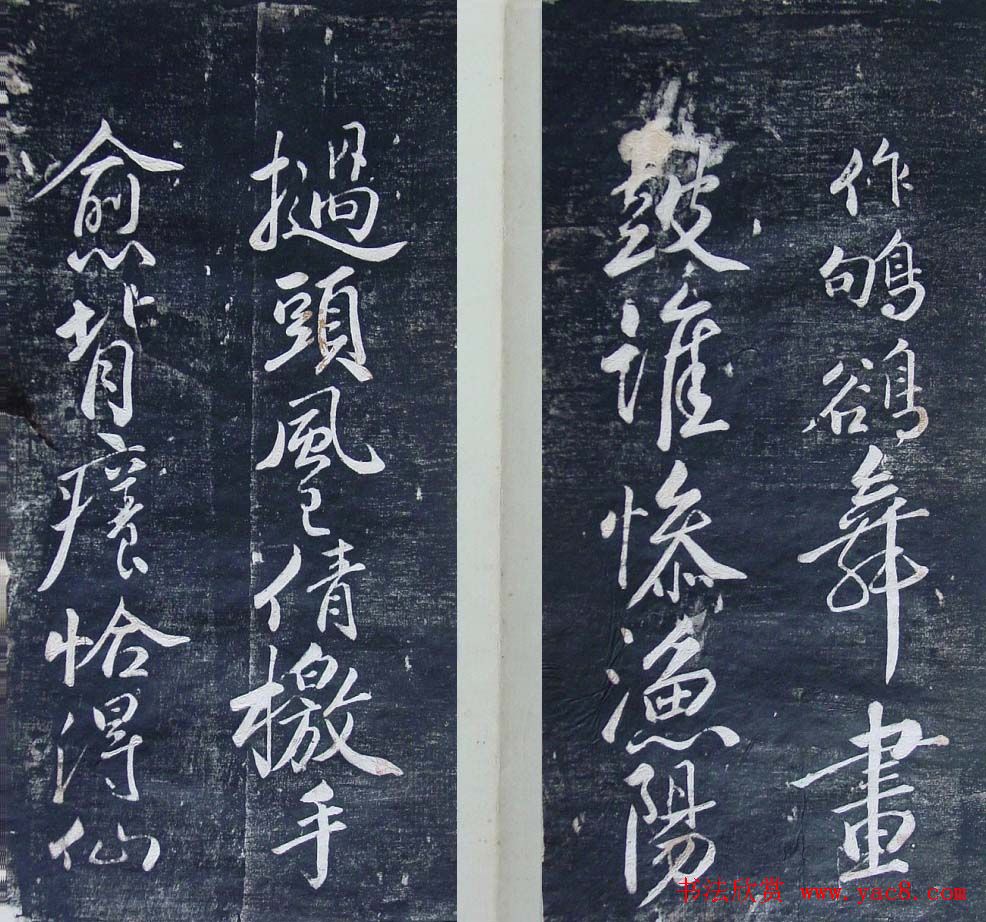 作鴝鵒舞畫
鼓誰慘漁陽
撾頭風已倩檄手
愈背癢恰得仙
书法欣赏 www.yac8.com